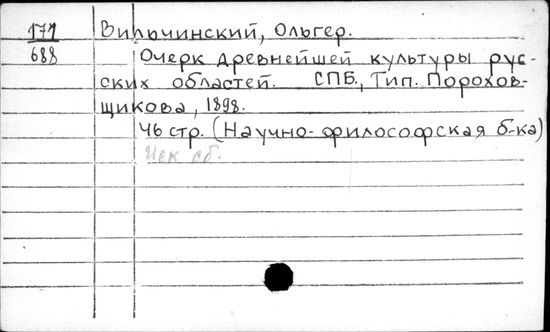 171
688
Вильчинский, Ольгер.
Очерк древнейшей культуры рус-
ских областей. СПБ., Тип. Порохов-
щикова, 1898.
46 стр. (Научно-философская б-ка)